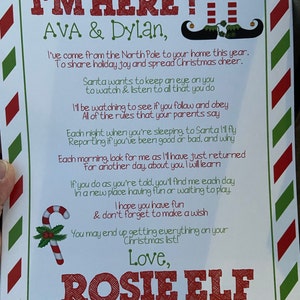 I'M HERE
Ava & Dylan,
I've come from the North Pole to your home this year.
To share holiday joy and spread Christmas cheer.
Santa wants to keep an eye on you
to watch & listen to all that you do
I'll be watching to see if you follow and obey
All of the rules that your parents say
Each night when you're sleeping, to Santa I'll fly
Reporting if you've been good or bad, and why
Each morning, look for me as I'll have just returned
For another day, about you, I will learn
If you do as you're told, you'll find me each day
In a new place having fun or waiting to play.
I hope you have fun
& don't forget to make a wish
You may end up getting everything on your
Christmas list!
Love,
ROSIE ELF